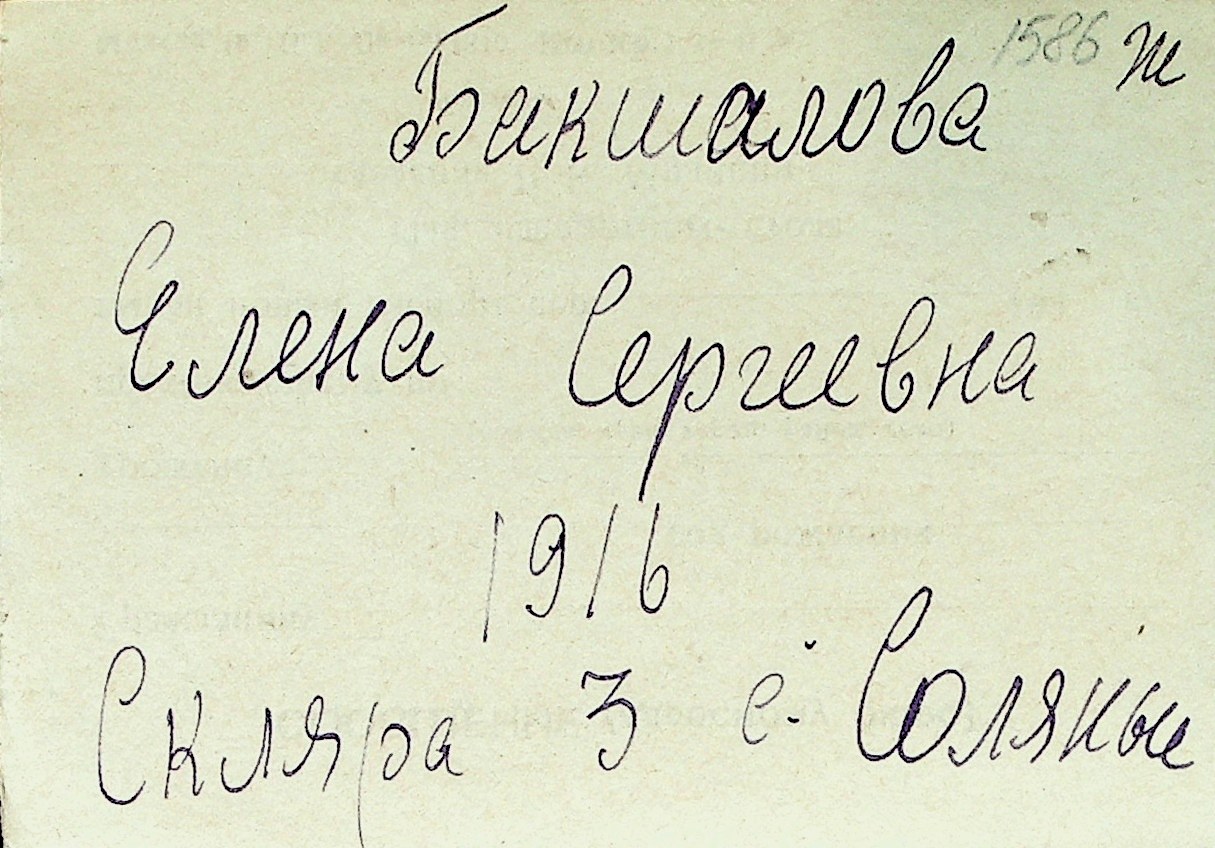 1586 ж
Бакшалова
Елена Сергеевна
1916
Скляра 3 с. Соляные